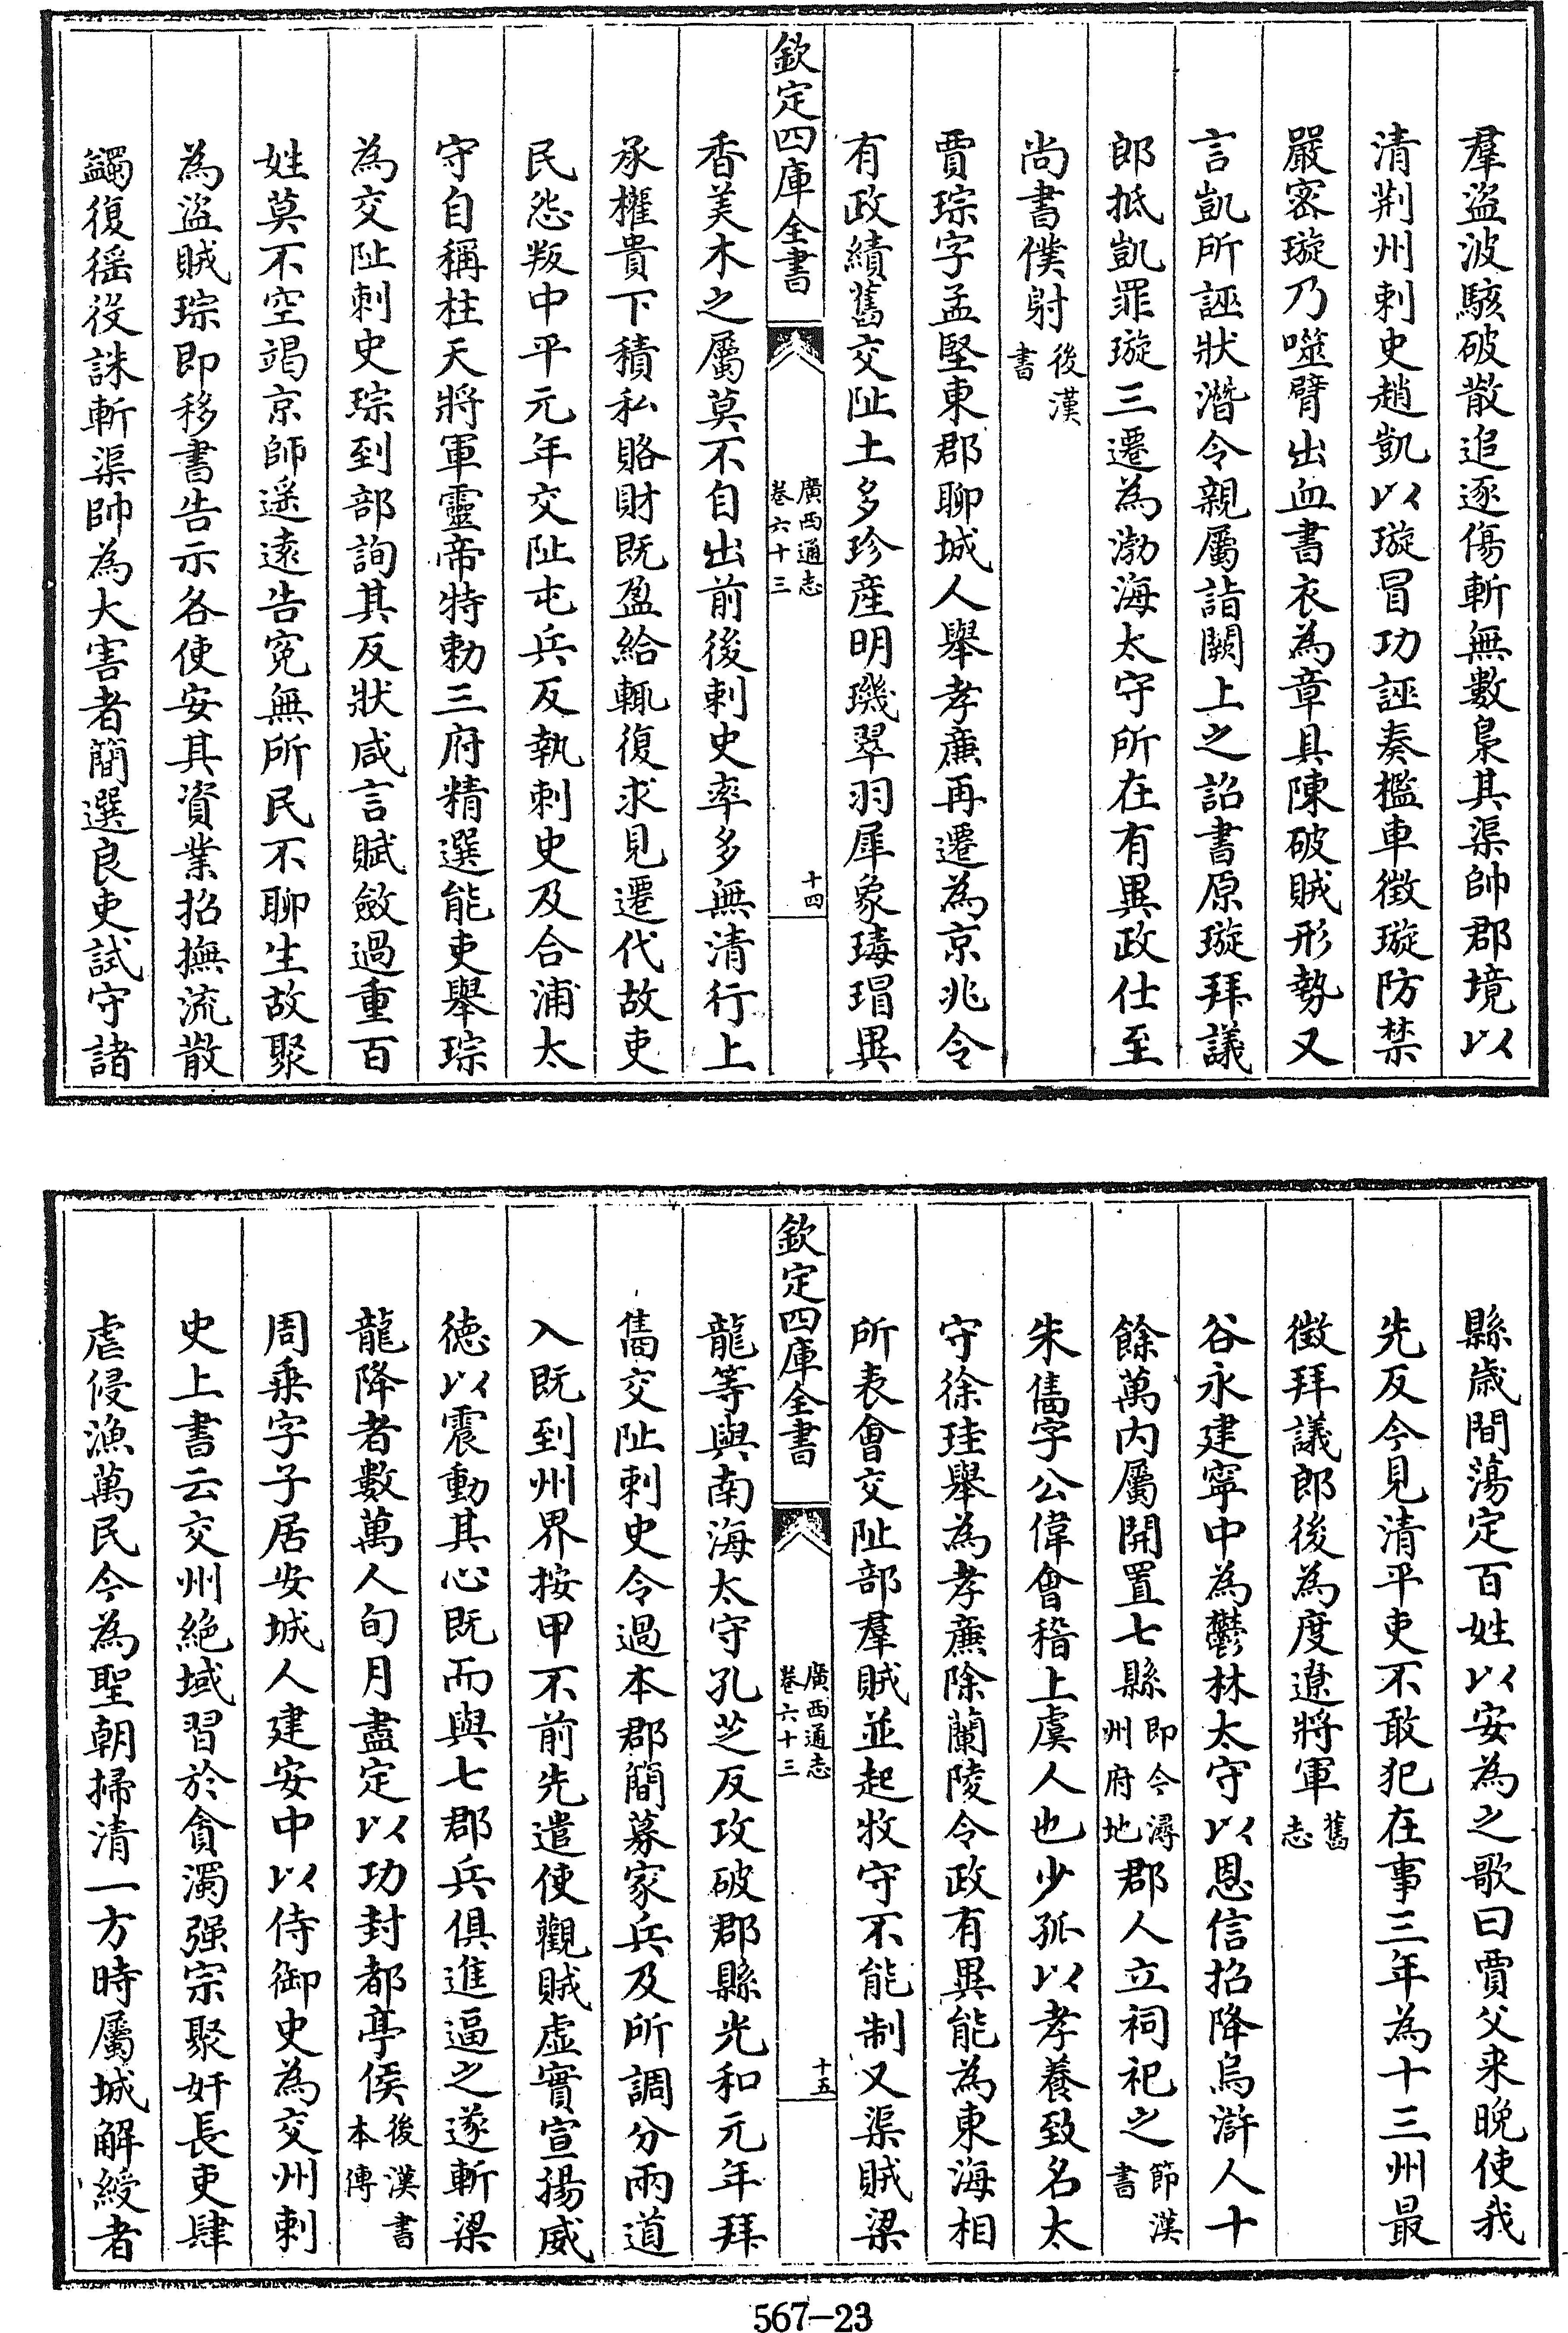 羣盜波駭破散追逐傷斬無數梟其渠帥郡境以
清荆州刺史趙凱以璇冒功誣奏檻車徵璇防禁
嚴密璇乃噬臂出血書衣為章具陳破賊形勢又
言凱所誣狀潛令親屬詣闕上之詔書原璇拜議
郎抵凱罪璇三遷為渤海太守所在有異政仕至
尚書僕射後漢書
賈琮字孟堅東郡聊城人舉孝廉再遷為京兆令
有政績舊交阯土多珍産明璣翠羽犀象瑇瑁異
欽定四庫全書
廣西通志
卷六十三
十四
香美木之屬莫不自出前後刺史率多無清行上
承權貴下積私賂財既盈給輒復求見遷代故吏
民怨叛中平元年交阯屯兵反執刺史及合浦太
守自稱柱天將軍靈帝特勅三府精選能吏舉琮
為交阯刺史琮到部詢其反狀咸言賦斂過重百
姓莫不空竭京師遥遠告寃無所民不聊生故聚
為盜賊琮即移書告示各使安其資業招撫流散
蠲復徭役誅斬渠帥為大害者簡選良吏試守諸
縣歲間蕩定百姓以安為之歌曰賈父来晚使我
先反今見清平吏不敢犯在事三年為十三州最
徵拜議郎後為度遼將軍舊志
谷永建寧中為鬱林太守以恩信招降烏滸人十
餘萬内屬開置七縣即今潯州府地郡人立祠祀之節漢書
朱儁字公偉會稽上虞人也少孤以孝養致名太
守徐珪舉為孝廉除蘭陵令政有異能為東海相
所表會交阯部羣賊並起牧守不能制又渠賊梁
欽定四庫全書
廣西通志
卷六十三
十五
龍等與南海太守孔芝反攻破郡縣光和元年拜
儁交阯刺史令過本郡簡募家兵及所調分兩道
入既到州界按甲不前先遣使觀賊虛實宣揚威
德以震動其心既而與七郡兵俱進逼之遂斬梁
龍降者數萬人旬月盡定以功封都亭侯後漢書本傳
周乗字子居安城人建安中以侍御史為交州刺
史上書云交州絶域習於貪濁强宗聚奸長吏肆
虐侵漁萬民今為聖朝掃清一方時屬城解綬者
567—23